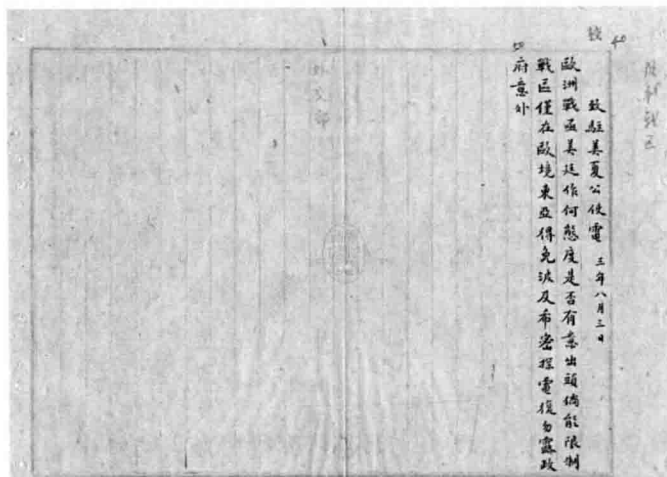 40
致駐美夏公使電 三年八月三日
歐洲戰亟美廷作何態度是否有意出頭倘能限制
戰區僅在歐境東亞得免波及希密探電復勿露政
府意外
外交部